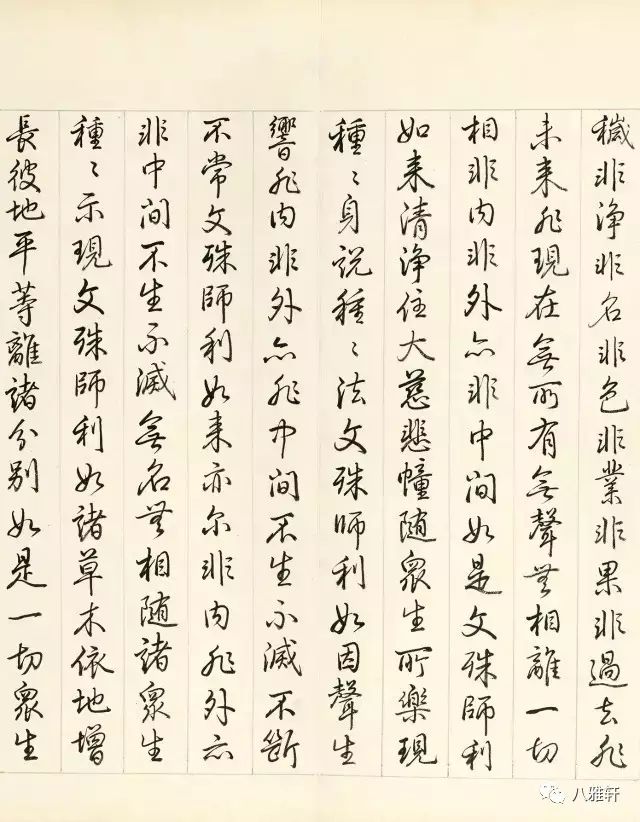 穢非浄非名非色非業非果非過去非
未来非現在無所有無聲無相離一切
相非内非外亦非中间如是文殊師利
如来清浄住大慈悲幢随衆生所樂現
種〻身説種〻法文殊师利如因聲生
響非内非外亦非中间不生不滅不斷
不常文殊師利如来亦尔非内非外亦
非中间不生不滅無名無相随諸衆生
種〻示現文殊師利如諸草木依地增
長彼地平等離諸分别如是一切衆生
八雅轩